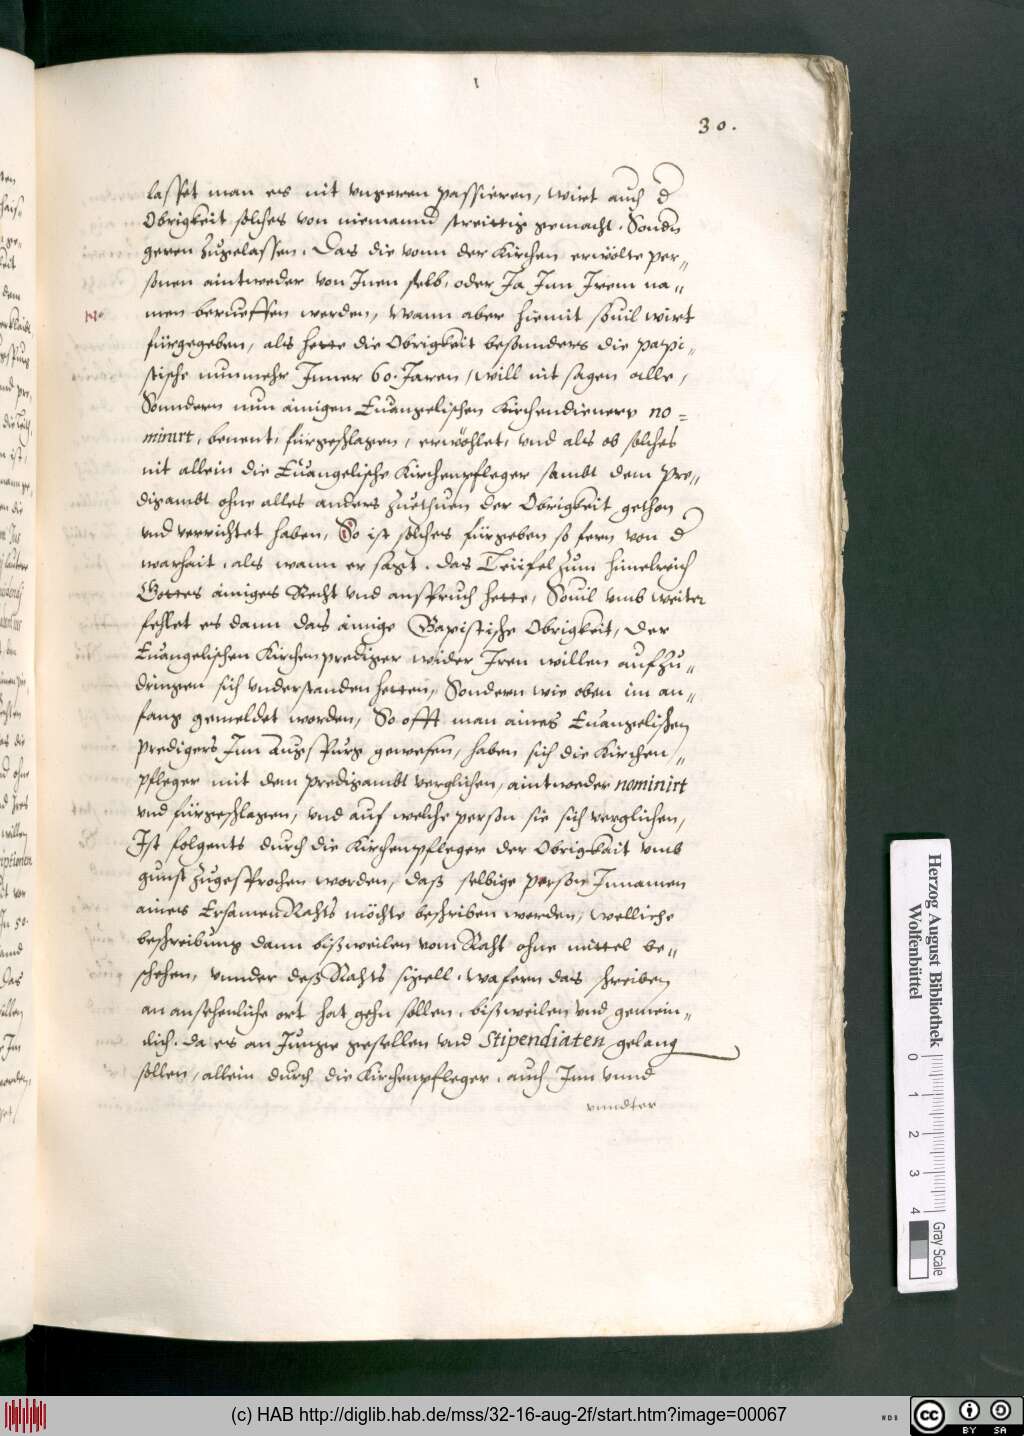 30.
lasset man es nit ungeren passieren, wirt auch d
Obrigkeit solches von niemannd streittig gemacht. Sondn
geren zugelassen. Das die vonn der Kirchen erwölte per-
sonen aintweder von Inen selb, oder Ja Inn Irem na-
men berueffen werden, Wann aber hiemit sovil wirt
fürgegeben, als hette die Obrigkeit besonnders die papi-
stische nunmehr Inner 60. Jaren, will nit sagen alle,
Sonndern nun ainigen Euangelischen Kirchendieners no=
minirt, benent, fürgeschlagen, erwöhlet, vnd als ob solches
nit allein die Euangelische Kirchenpfleger sambt dem pre-
digambt ohne alles anders zuethuen der Obrigkeit gethon
vnd verrichtet haben, So ist solches fürgeben so fern von d
warhait, als wann er sagt, das Teüfel zum himelreich
Gottes ainiges Recht vnd anspruch hette, Souil vmb weiter
fehlet es dann das ainige Bapistische Obrigkeit, der
Euangelischen Kirchenprediger wider Iren willen aufzu-
dringen sich vnderstanden hetten, Sondern wie oben im an-
fang gemeldet worden, So offt man aines Euangelischen
predigers Inn Augspurg gewesen, haben sich die Kirchen-
pfleger mit dem predigambt verglichen, aintweder nominirt
vnd fürgeschlagen, vnd auf welche person sie sich verglichen,
Ist folgents durch die Kirchenpfleger der Obrigkait vmb
gunst zugesprochen worden, daß selbige person Innamen
aines Ersamen Rahts möchte beschriben werden, welliche
beschreibung dann bißweilen vom Raht ohne mittel be-
schehen, vnnder deß Rahts sigell, wafern das schreiben
an ansehenliche ort hat gehn sollen, bißweilen vnd gemein-
lich, da es an Junge gesellen vnd Stipendiaten gelang
sollen, allein durch die Kirchenpfleger, auch Inn vnnd
vnndter
Herzog August Bibliothek
Wolfenbüttel
0 1 2 3 4
Gray Scale
(c) HAB http://diglib.hab.de/mss/32-16-aug-2f/start.htm?image=00067
WDB
cc BY SA